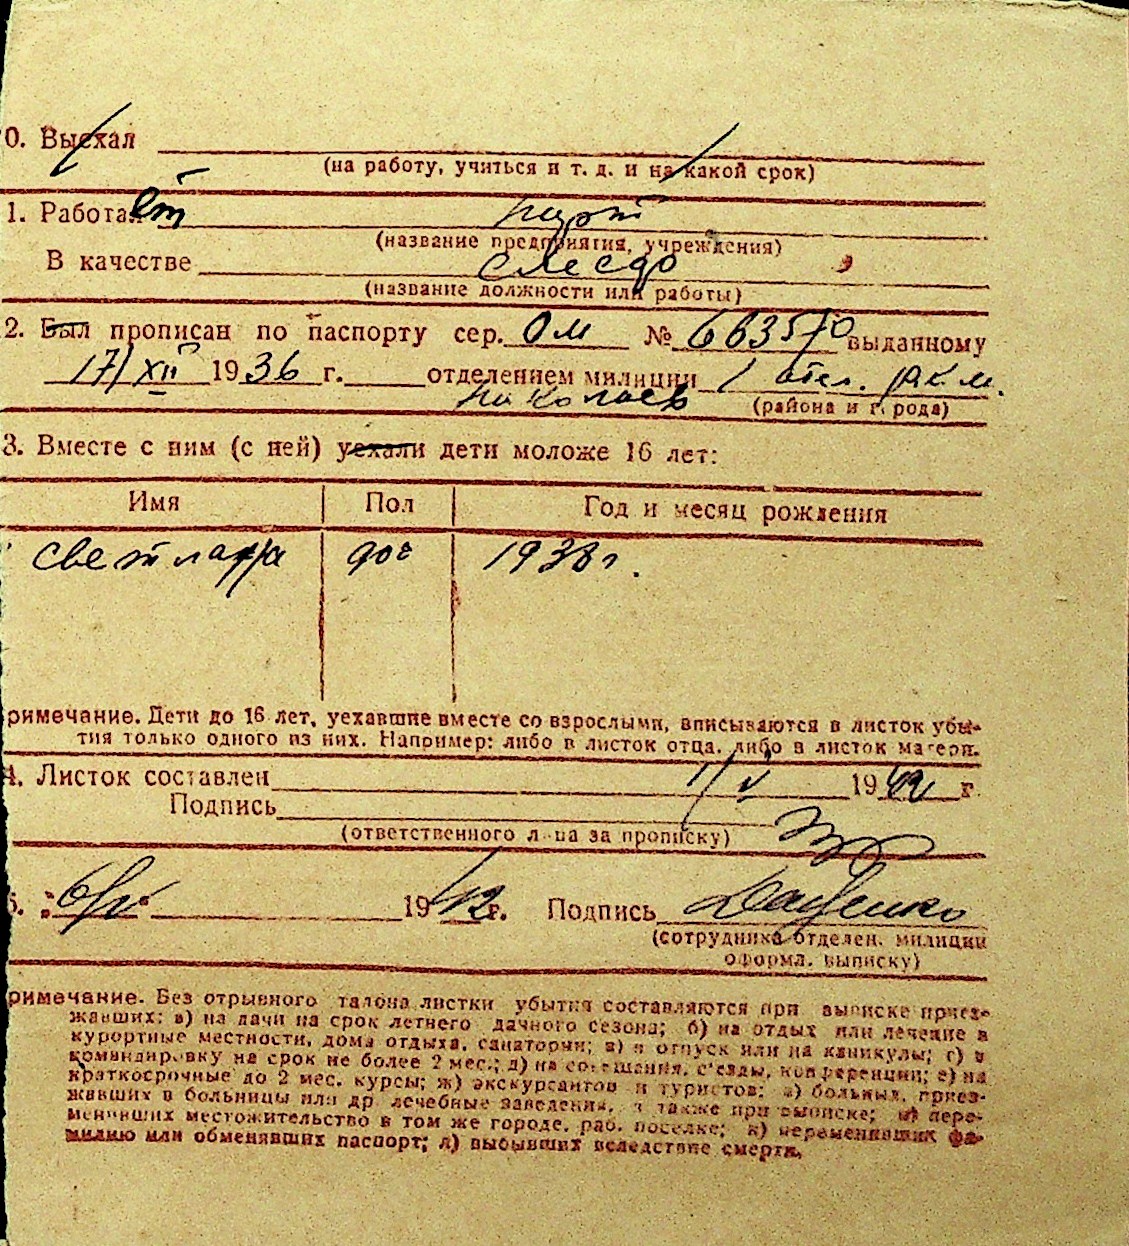 0. Выехал
(на работу, учиться и т. д. и на какой срок)
1. Работает порт
(название предприятия, учреждения)
В качестве слесар
(название должности или работы)
2. Был прописан по паспорту сер. ОМ № 663570 выданному
17/XII 1936 г. отделением милиции 1 отел. Р.К.М.
Николаев (района и города)
3. Вместе с ним (с ней) уехали дети моложе 16 лет:
Имя Пол Год и месяц рождения
Светлана доч 1938 г.
римечание. Дети до 16 лет, уехавшие вместе со взрослыми, вписываются в листок убы-
тия только одного из них. Например: либо в листок отца, либо в листок матери.
4. Листок составлен 1/V 1942 г.
Подпись
(ответственного лица за прописку)
5. "6/V" 1942 г. Подпись Даценко
(сотрудника отделен. милиции
оформл. выписку)
римечание. Без отрывного талона листки убытия составляются при выписке приез-
жавших: а) на дачи на срок летнего дачного сезона; б) на отдых или лечение в
курортные местности, дома отдыха, санатории; в) в отпуск или на каникулы; г) в
командировку на срок не более 2 мес.; д) на совещания, с'езды, конференции; е) на
краткосрочные до 2 мес. курсы; ж) экскурсантов и туристов; з) больных, приез-
жавших в больницы или др лечебные заведения, а также при выписке; и) пере-
менивших местожительство в том же городе, раб. поселке; к) переменивших фа-
милию или обменявших паспорт; л) выбывших вследствие смерти.